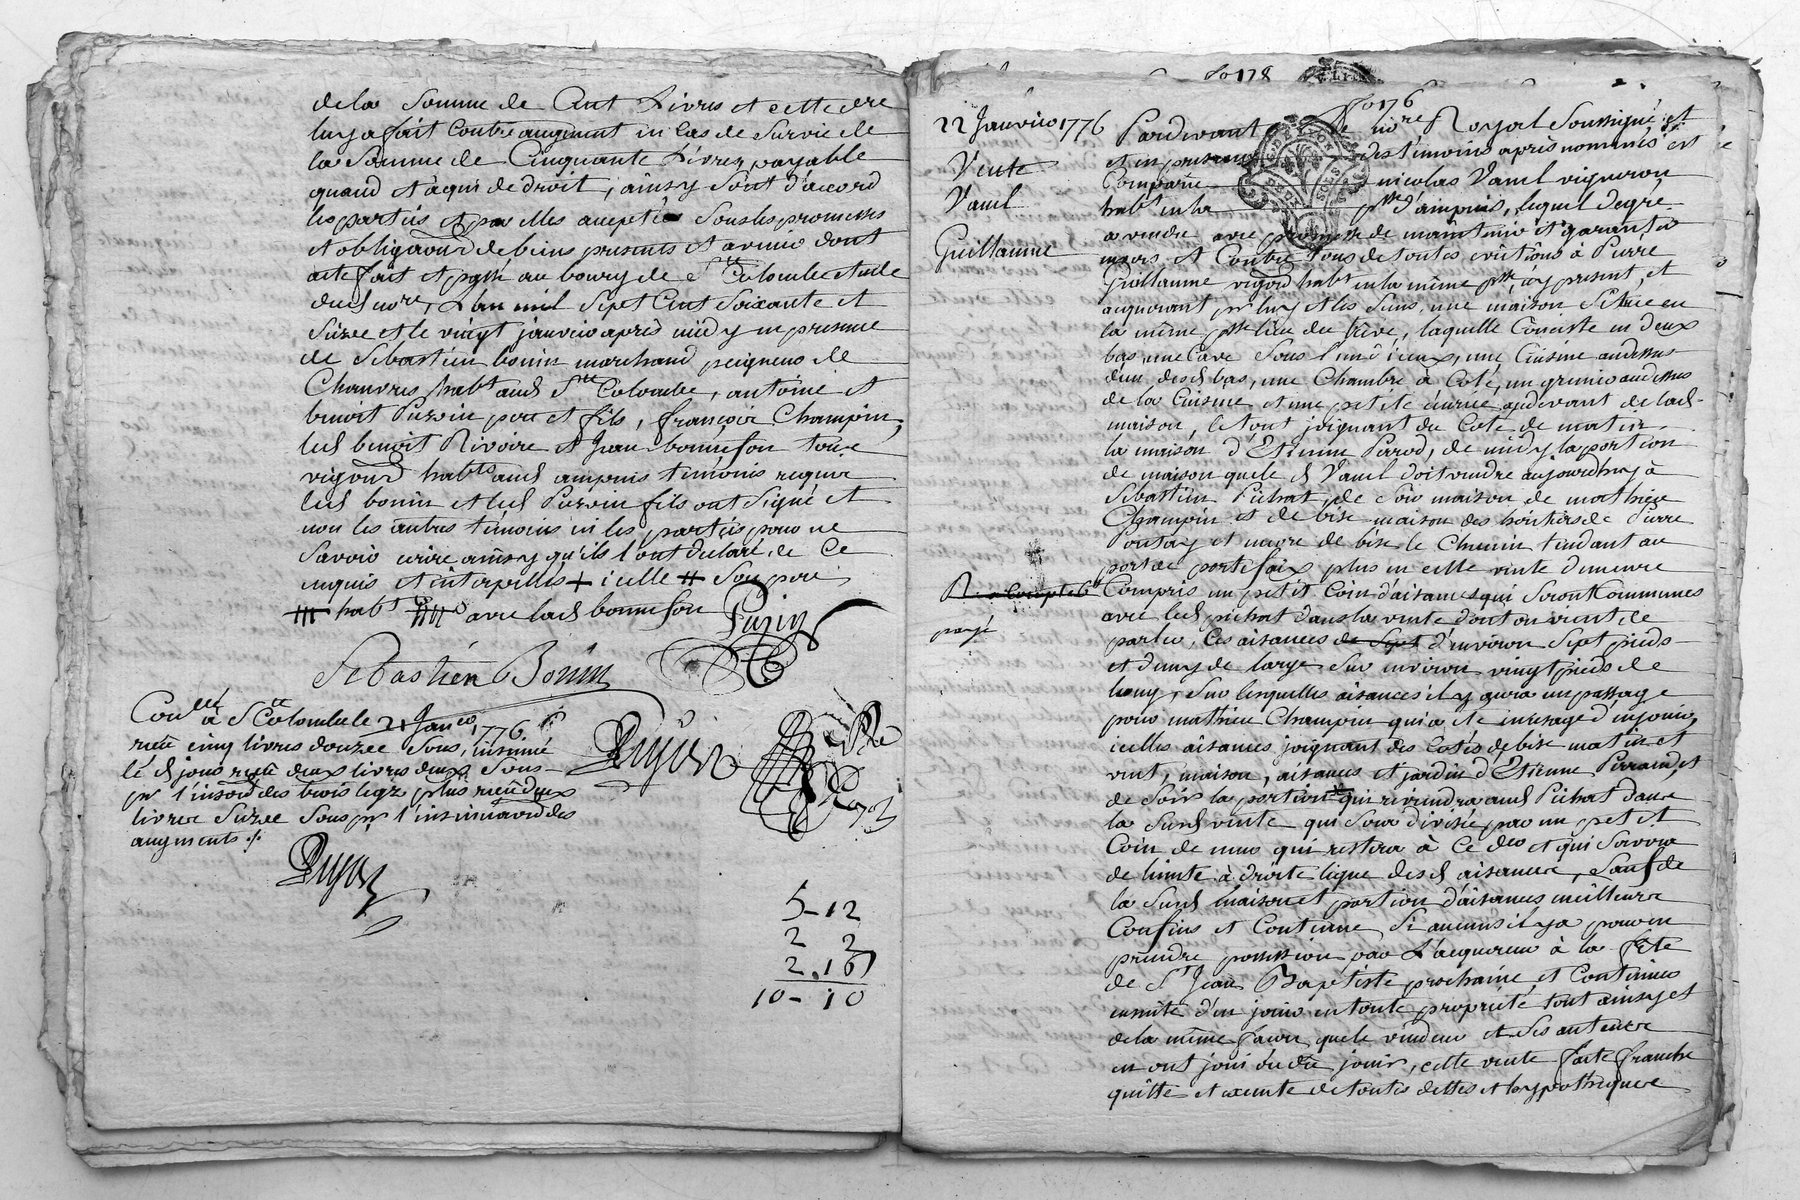 de la somme de Cent Livres et cette dre
luy a fait Contre augment en Cas de Survie de
la Somme de Cinquante Livres payable
quand et à qui de droit, ainsy Sont d'accord
les parties et par elles acceptés Sous les promesses
et obligaons de biens presents et avenir dont
acte fait et passé au bourg de Ste Colombe etude
dud nore, L'an mil Sept Cent Soixante et
Seize et le vingt janvier après midy en presence
de Sebastien bonin marchand peigneur de
Chanvres habt aud Ste Colombe, antoine et
benoit Pervin pere et fils, françois Champin,
led benoit Rivoire et Jean bonnefon tous
vigons habts aud ampuis temoins requis
led bonin et led Pervin fils ont Signé et
non les autres temoins ni les parties pour ne
Savoir ecrire ainsy qu'ils l'ont declaré de Ce
enquis et interpellés + icelle # Son pere
habt avec lad bonnefon
Sebastien Bonin
Conllé à Ste Colombe le 21 Janer 1776
recu cinq livres douze Sous, insinué
le d jour recu deux livres deux Sous
pr l'insion des trois legs plus recu deux
livres Seize Sous pr l'insinuaon des
augments ./.
5-12
2 2
2.16
10-10
fo 178
fo 176
22 Janvier 1776
Vente
Vanel
Guillaume
Pardevant le nore Royal Soussigné et
et en presence des temoins après nommés est
Comparu nicolas Vanel vigneron
habt en la psse d'ampuis, lequel de gré
a vendu avec promesse de maintenir et garantir
envers et Contre tous de toutes evictions à Pierre
Guillaume vigon habt en la même psse, icy present et
acquerant pr luy et les Siens, une maison Scituée en
la même psse lieu du trève, laquelle Consiste en deux
bas, une Cave Sous l'un d'iceux, une Cuisine audessus
d'un desd bas, une Chambre à Coté, un grenier audessus
de la Cuisine et une petite ecurie audevant de lad
maison, le tout joignant du Coté de matin
la maison d'Etienne Perrod, de midy la portion
de maison que le d Vanel doit vendre aujourd'huy à
Sebastien Pichat, de Soir maison de mathieu
Champin et de bise maison des héritiers de Pierre
et encore de bise le Chemin tendant au
port de portefaix plus en cette vente demeure
Compris un petit Coin d'aisances qui Seront Communes
avec led pichat dans la vente dont on vient de
parler, Ces aisances de Sept d'environ Sept pieds
et demy de large Sur environ vingt pieds de
long, Sur lesquelles aisances il y aura un passage
pour mathieu Champin qui a été en usage d'en jouir,
icelles aisances joignant des Cotés de bise matin et
vent, maison, aisances et jardin d'Etienne Perraud, et
de Soir la portion qui reviendra aud Pichat dans
la Susd vente qui Sera divisée par un petit
Coin de mur qui restera à Ce der et qui Servira
de limite à droite ligne desd aisances, Sauf de
la Susd maison et portion d'aisances meilleurs
Confins et Contenue Si aucuns il y a pour en
prendre possession par L'acquereur à la fête
de St Jean Baptiste prochaine, et Continuer
ensuite d'en jouir en toute propriété tout ainsy et
de la même façon que le vendeur et Ses auteurs
en ont joui ou dû jouir, cette vente faite franche
quitte et exempte de toutes dettes et hypotheques
payé